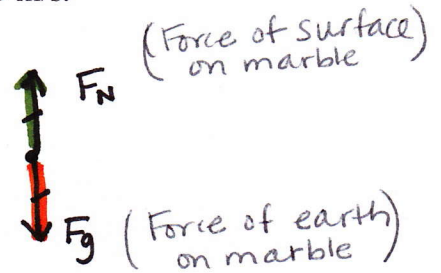 (Force of surface)
on marble
F_N
F_g (Force of earth)
on marble